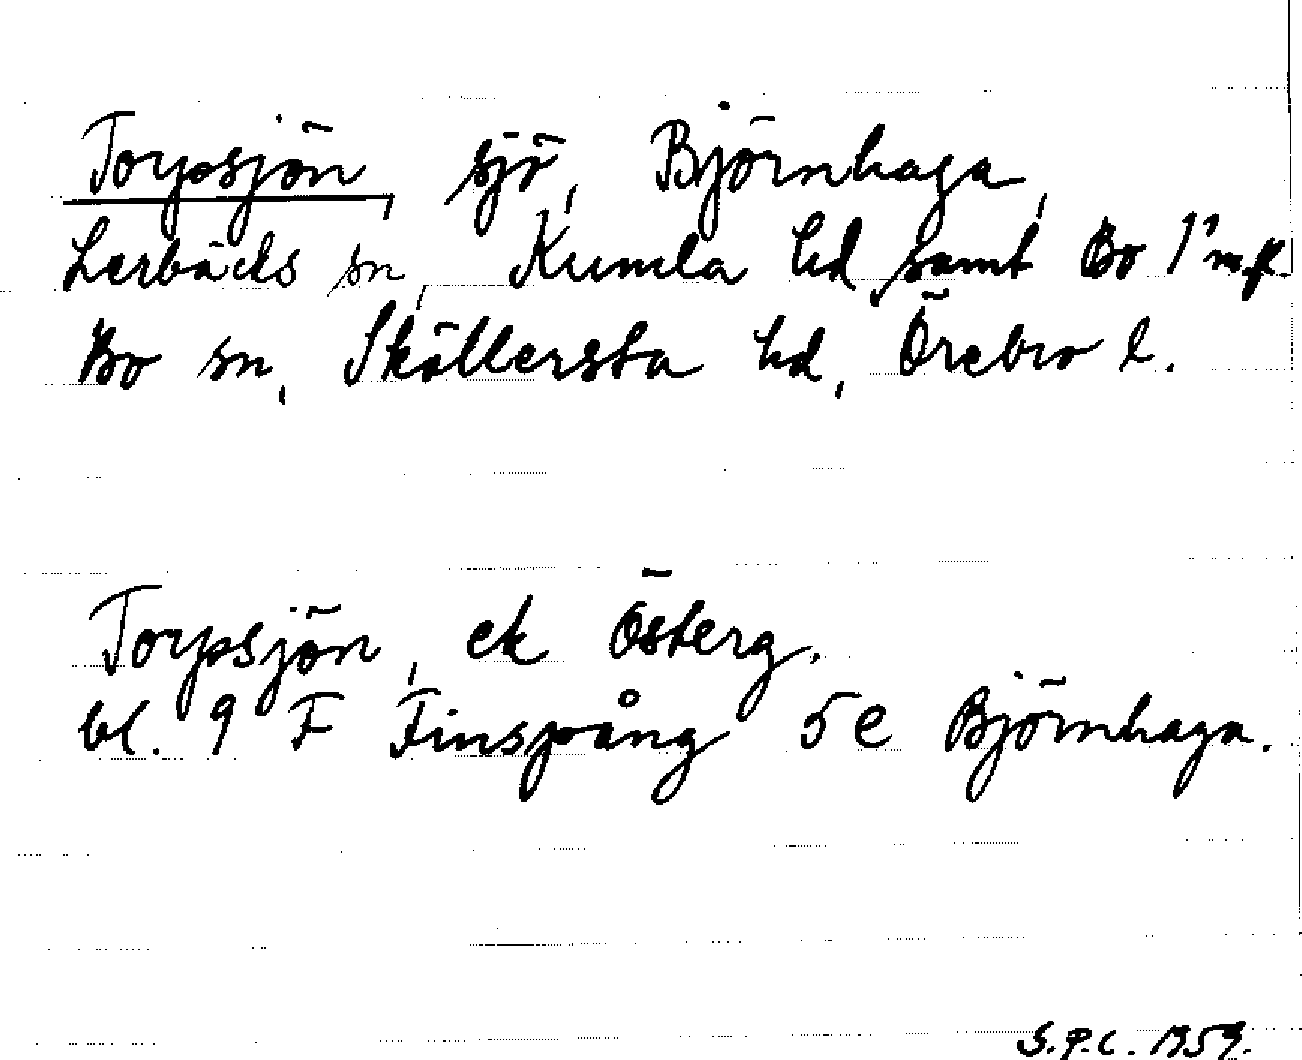 Torpsjön, sjö, Björnhaga,
Lerbäcks sn, Kumla hd samt Bo 1² m.fl.
Bo sn, Sköllersta hd, Örebro l.
Torpsjön, ek Österg.
bl. 9 F Finspång 5 e Björnhaga.
S.P.C. 1959.